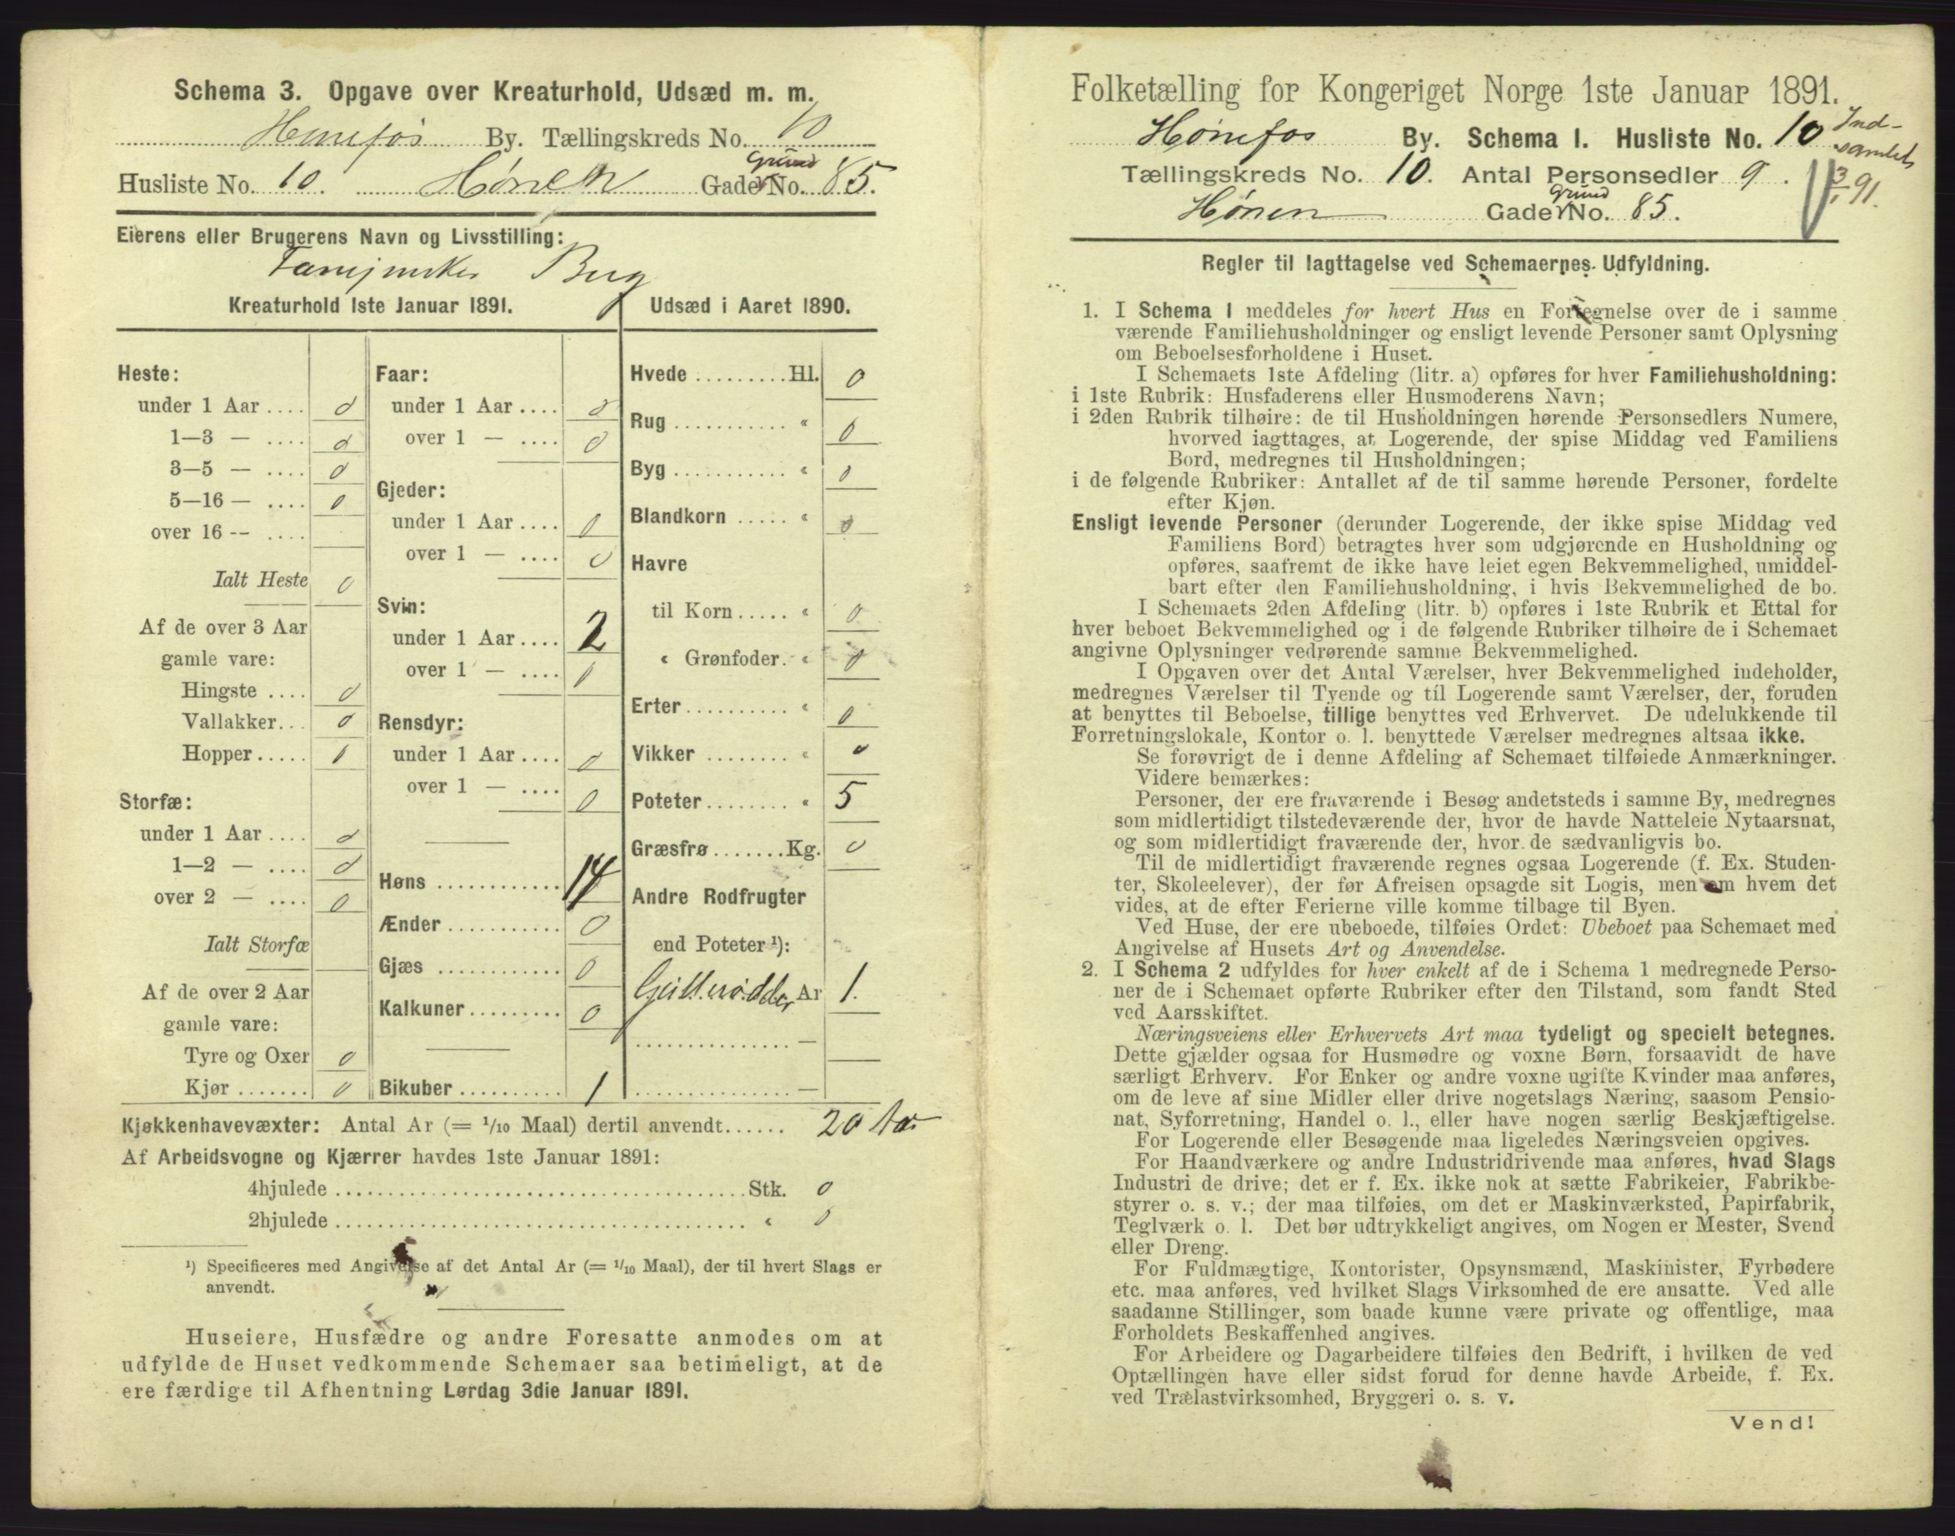 Schema 3. Opgave over Kreaturhold, Udsæd m. m.
Hønefos By. Tællingskreds No. 10
Husliste No. 10. Hønen Gade No. Grund 85.
Eierens eller Brugerens Navn og Livsstilling:
Kreaturhold 1ste Januar 1891.
Heste:
under 1 Aar .... 0
1—3 — .... 0
3—5 — .... 0
5—16 — .... 0
over 16 -- ....
Ialt Heste 0
Af de over 3 Aar
gamle vare:
Hingste .... 0
Vallakker... 0
Hopper..... 0
Storfæ:
under 1 Aar .... 0
1—2 — .... 0
over 2 — .... 0
Ialt Storfæ
Af de over 2 Aar
gamle vare:
Tyre og Oxer 0
Kjør ....... 0
Faar:
under 1 Aar .... 0
over 1 — .... 0
Gjeder:
under 1 Aar .... 0
over 1 — .... 0
Svin:
under 1 Aar .... 2
over 1 — .... 0
Rensdyr:
under 1 Aar .... 0
over 1 — .... 0
Høns ............ 14
Ænder ........... 0
Gjæs ............ 0
Kalkuner ......... 0
Bikuber .......... 1
Udsæd i Aaret 1890.
Hvede ......... Hl. 0
Rug ........... " 0
Byg ........... " 0
Blandkorn ..... " 0
Havre
til Korn ..... " 0
" Grønfoder. " 0
Erter .......... " 0
Vikker ........ " 0
Poteter........ " 5
Græsfrø ....... Kg. 0
Andre Rodfrugter
end Poteter ¹):
Gullerødder Ar 1.
............... —
............... —
Kjøkkenhavevæxter: Antal Ar (= 1/10 Maal) dertil anvendt...... 20 Ar
Af Arbeidsvogne og Kjærrer havdes 1ste Januar 1891:
4hjulede .................................... Stk. 0
2hjulede .................................... " 0
¹) Specificeres med Angivelse af det Antal Ar (= 1/10 Maal), der til hvert Slags er
anvendt.
Huseiere, Husfædre og andre Foresatte anmodes om at
udfylde de Huset vedkommende Schemaer saa betimeligt, at de
ere færdige til Afhentning Lørdag 3die Januar 1891.
Folketælling for Kongeriget Norge 1ste Januar 1891.
Hønefos By. Schema 1. Husliste No. 10
Ind-
samlet
3/1 91.
Tællingskreds No. 10. Antal Personsedler 9.
Hønen Gade No. Grund 85.
Regler til Iagttagelse ved Schemaernes Udfyldning.
1. I Schema 1 meddeles for hvert Hus en Fortegnelse over de i samme
værende Familiehusholdninger og ensligt levende Personer samt Oplysning
om Beboelsesforholdene i Huset.
I Schemaets 1ste Afdeling (litr. a) opføres for hver Familiehusholdning:
i 1ste Rubrik: Husfaderens eller Husmoderens Navn;
i 2den Rubrik tilhøire: de til Husholdningen hørende Personsedlers Numere,
hvorved iagttages, at Logerende, der spise Middag ved Familiens
Bord, medregnes til Husholdningen;
i de følgende Rubriker: Antallet af de til samme hørende Personer, fordelte
efter Kjøn.
Ensligt levende Personer (derunder Logerende, der ikke spise Middag ved
Familiens Bord) betragtes hver som udgjørende en Husholdning og
opføres, saafremt de ikke have leiet egen Bekvemmelighed, umiddel-
bart efter den Familiehusholdning, i hvis Bekvemmelighed de bo.
I Schemaets 2den Afdeling (litr. b) opføres i 1ste Rubrik et Ettal for
hver beboet Bekvemmelighed og i de følgende Rubriker tilhøire de i Schemaet
angivne Oplysninger vedrørende samme Bekvemmelighed.
I Opgaven over det Antal Værelser, hver Bekvemmelighed indeholder,
medregnes Værelser til Tyende og til Logerende samt Værelser, der, foruden
at benyttes til Beboelse, tillige benyttes ved Erhvervet. De udelukkende til
Forretningslokale, Kontor o. l. benyttede Værelser medregnes altsaa ikke.
Se forøvrigt de i denne Afdeling af Schemaet tilføiede Anmærkninger.
Videre bemærkes:
Personer, der ere fraværende i Besøg andetsteds i samme By, medregnes
som midlertidigt tilstedeværende der, hvor de havde Natteleie Nytaarsnat,
og som midlertidigt fraværende der, hvor de sædvanligvis bo.
Til de midlertidigt fraværende regnes ogsaa Logerende (f. Ex. Studen-
ter, Skoleelever), der før Afreisen opsagde sit Logis, men om hvem det
vides, at de efter Ferierne ville komme tilbage til Byen.
Ved Huse, der ere ubeboede, tilføies Ordet: Ubeboet paa Schemaet med
Angivelse af Husets Art og Anvendelse.
2. I Schema 2 udfyldes for hver enkelt af de i Schema 1 medregnede Perso-
ner de i Schemaet opførte Rubriker efter den Tilstand, som fandt Sted
ved Aarsskiftet.
Næringsveiens eller Erhvervets Art maa tydeligt og specielt betegnes.
Dette gjælder ogsaa for Husmødre og voxne Børn, forsaavidt de have
særligt Erhverv. For Enker og andre voxne ugifte Kvinder maa anføres,
om de leve af sine Midler eller drive nogetslags Næring, saasom Pensio-
nat, Syforretning, Handel o. l., eller have nogen særlig Beskjæftigelse.
For Logerende eller Besøgende maa ligeledes Næringsveien opgives.
For Haandværkere og andre Industridrivende maa anføres, hvad Slags
Industri de drive; det er f. Ex. ikke nok at sætte Fabrikeier, Fabrikbe-
styrer o. s. v.; der maa tilføies, om det er Maskinværksted, Papirfabrik,
Teglværk o. l. Det bør udtrykkeligt angives, om Nogen er Mester, Svend
eller Dreng.
For Fuldmægtige, Kontorister, Opsynsmænd, Maskinister, Fyrbødere
etc. maa anføres, ved hvilket Slags Virksomhed de ere ansatte. Ved alle
saadanne Stillinger, som baade kunne være private og offentlige, maa
Forholdets Beskaffenhed angives.
For Arbeidere og Dagarbeidere tilføies den Bedrift, i hvilken de ved
Optællingen have eller sidst forud for denne havde Arbeide, f. Ex.
ved Trælastvirksomhed, Bryggeri o. s. v.
Vend!